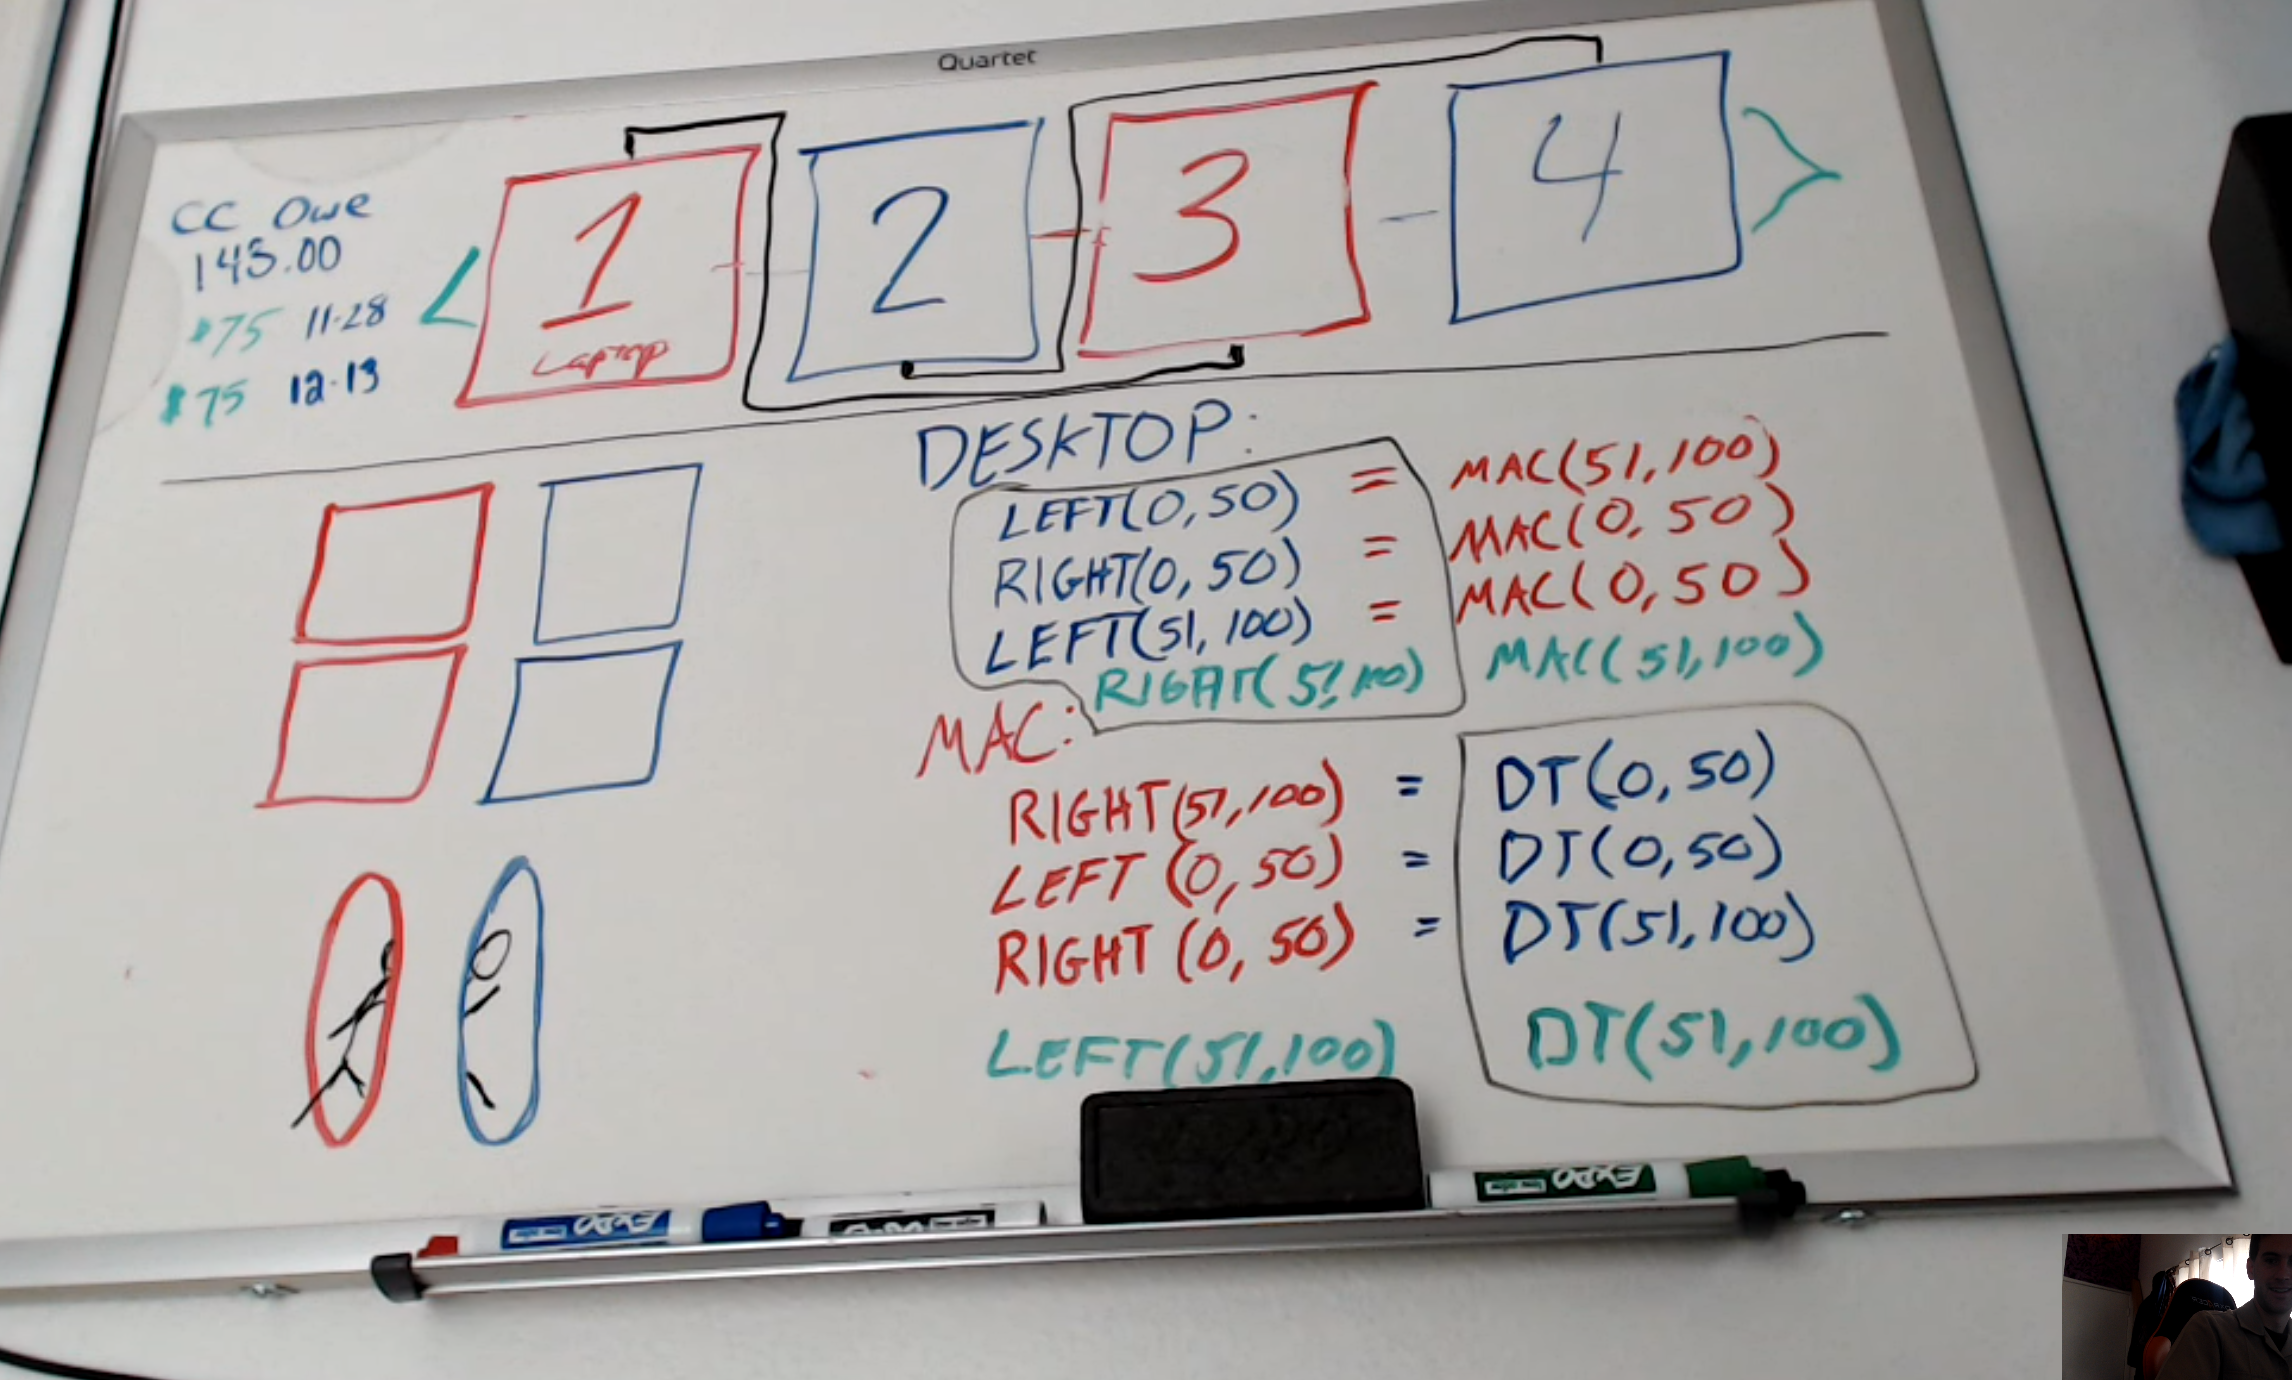 Quartet
CC Owe
143.00
$75 11-28
$75 12-13
1
Laptop
2
3
4
DESKTOP:
LEFT(0,50) = MAC(51,100)
RIGHT(0,50) = MAC(0,50)
LEFT(51,100) = MAC(0,50)
RIGHT(51,100) MAC(51,100)
MAC:
RIGHT(51,100) = DT(0,50)
LEFT(0,50) = DT(0,50)
RIGHT(0,50) = DT(51,100)
LEFT(51,100) DT(51,100)
EXPO
EXPO